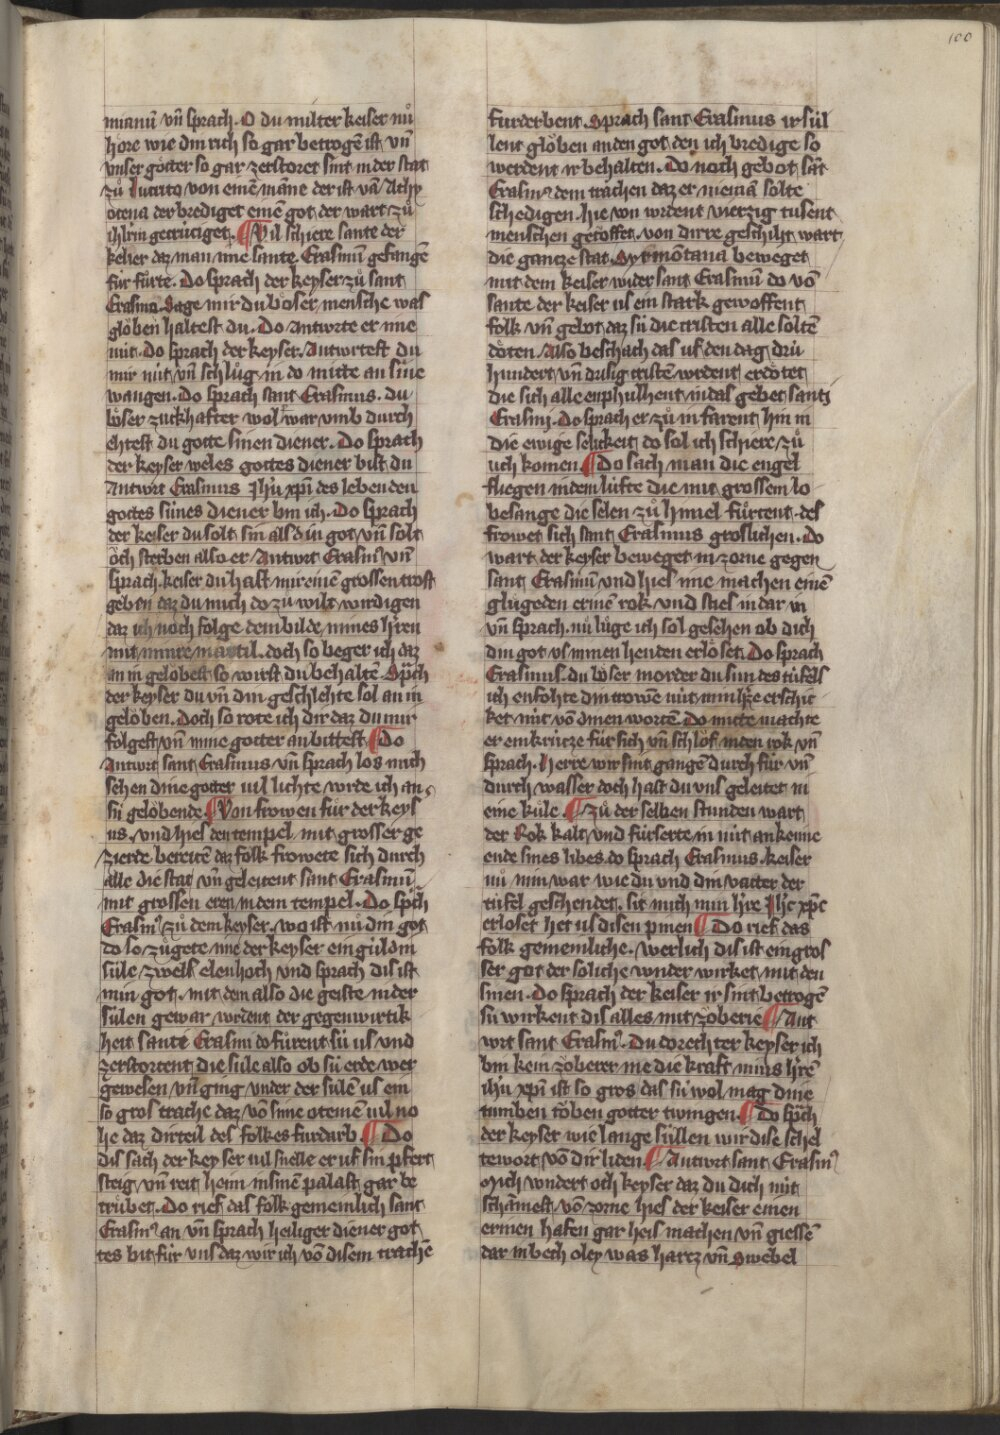 100
mianū vn̄ sprach. O du milter keiser nů
hore wie din rich so gar betrogē ist vn̄
vnser gotter so gar zerstoret sint in der stat
zů lucrito von einē māne der ist vā Athy
ocena der brediget einē got der wart zů
ihlrm gecrúciget. ¶ Vil schiere sante der
keiser daz man ime sante Erasmū gefangē
fúr fůrte. Do sprach der keyser zů sant
Erasmo. Sage mir du boser mensche was
gloͤben haltest du. Do Antwrte er ime
nút. Do sprach der keyser. Antwrtest du
mir nút vn̄ schlůg in do mitte an sine
wangen. Do sprach sant Erasimus. du
boͤser zuckhafter wolf war vmb durch
ehtest du gotte sinen diener. Do sprach
der keyser weles gottes diener bist du
Antwrt Erasimus Jhū xpi des lebenden
gottes sunes diener bin ich. Do sprach
der keiser du solt sin als din got vn̄ solt
oͤch sterben also er Antwrt Erasim9 vn̄
sprach. keiser du hast mir einē grossen trost
geben daz du mich do zů wilt wirdigen
daz ich noch folge dem bilde mines h'ren
mit minre martil. doch so beger ich daz
an in gelobest so wirst du behaltē. Sp̄ch
der keyser du vn̄ din geschlehte sol an in
geloben. Doch so rote ich dir daz du mir
folgest vn̄ mine gotter an bittest ¶ Do
Antwrt sant Erasimus vn̄ sprach los mich
sehen dine gotter vil lichte wrde ich an
si gelobende ¶ Von frowen fúr der keys
us. vnd hies den tempel mit grosser ge
zierde bereitē daz folk frowete sich durch
alle die stat vn̄ geleitent sant Erasimū
mit grossen eren in dem tempel. Do sp̄ch
Erasim9 zů dem keyser. wo ist nů din got
do so zůgete ime der keyser ein gúldin
súle zwelf elen hoch vnd sprach dis ist
min got. mit dem also die geiste in der
súlen gewar wrdent der gegenwirtik
heit sante Erasimi do fůrent sú us vnd
zerstortent die súle also ob sú erde wer
gewesen vn̄ ging vnder der súlē us ein
so gros trache daz vō sime otemē vil no
he daz dirteil des folkes furdarb. ¶ Do
dis sach der keyser vil snelle er uf sin pfert
steig vn̄ reit heim in sinē palast gar be
trůbet. Do rief das folk gemeinlich sant
Erasim9 an vn̄ sprach heiliger diener got
tes bit fúr vns daz wir ich vō disem trachē
furderbent. Sprach sant Erasimus ir súl
lent gloͤben an den got den ich bredige so
werdent ir behalten. Do noch gebot sāt
Erasim9 dem trachen daz er niemā solte
schedigen hie von wrdent vierzig tusent
menschen getoͤffet. von dirre geschiht wart
die gantze stat Syrmōtana beweget
mit dem keiser wider sant Erasimū do vō
sante der keiser us ein stark gewoffent
folk vn̄ gebot daz sú die cristen alle soltē
doͤten. Also beschach das uf den dag drú
hundert vn̄ drisig cristē wrdent erdotet
die sich alle enphulhent in das gebet santi
Erasimi. Do sprach er zů in farent hin in
die ewige selickeit do sol ich schiere zů
úch komen ¶ Do sach man die engel
fliegen in dem lufte die mit grossem lo
besange die selen zů himel fůrtent. des
frowet sich sant Erasimus groslichen. Do
wart der keyser beweget in zorne gegen
sant Erasimū vnd hies ime machen einē
glúgeden erinē rok vnd sties in dar in
vn̄ sprach. nů lůge ich sol gesehen ob dich
din got vs minen henden erlôset. Do sprach
Erasimus. du boͤser morder du sun des túfels
ich enfohte din trowē nút. min h'ze erschri
ket nút vō dinen wortē. Do mitte machte
er ein krútze fúr sich vn̄ schlôf in den rok vn̄
sprach. Herre wir sint gangē durch fúr vn̄
durch wasser doch hast du vns geleitet in
eine kúle ¶ Zů der selben stunden wart
der Rok kalt vnd fúrserte in nút an keime
ende sines libes. do sprach Erasimus. keiser
nů nim war wie du vnd din vatter der
túfel geschendet. sit mich min h're Jhc xpc
erloset het us disen pinen ¶ Do rief das
folk gemeinliche. werlich dis ist ein gros
ser got der soliche wnder wirket mit den
sinen. Do sprach der keiser ir sint betrogē
sú wirkent dis alles mit zoͤberie ¶ Ant
wrt sant Erasim9. Du dorechter keyser ich
bin kein zoͤberer me die kraft mins h'rē
ihū xpi ist so gros das sú wol mag dine
tumben toͤben gotter twingen. ¶ Do sp̄ch
der keyser wie lange súllen wir dise schel
tewort vō dir liden ¶ Antwrt sant Erasim9
mich wndert och keyser daz du dich nút
schāmest. vō zorne hies der keiser einen
erinen hafen gar heis machen vn̄ giessē
dar in bech oley was hartz vn̄ swebel